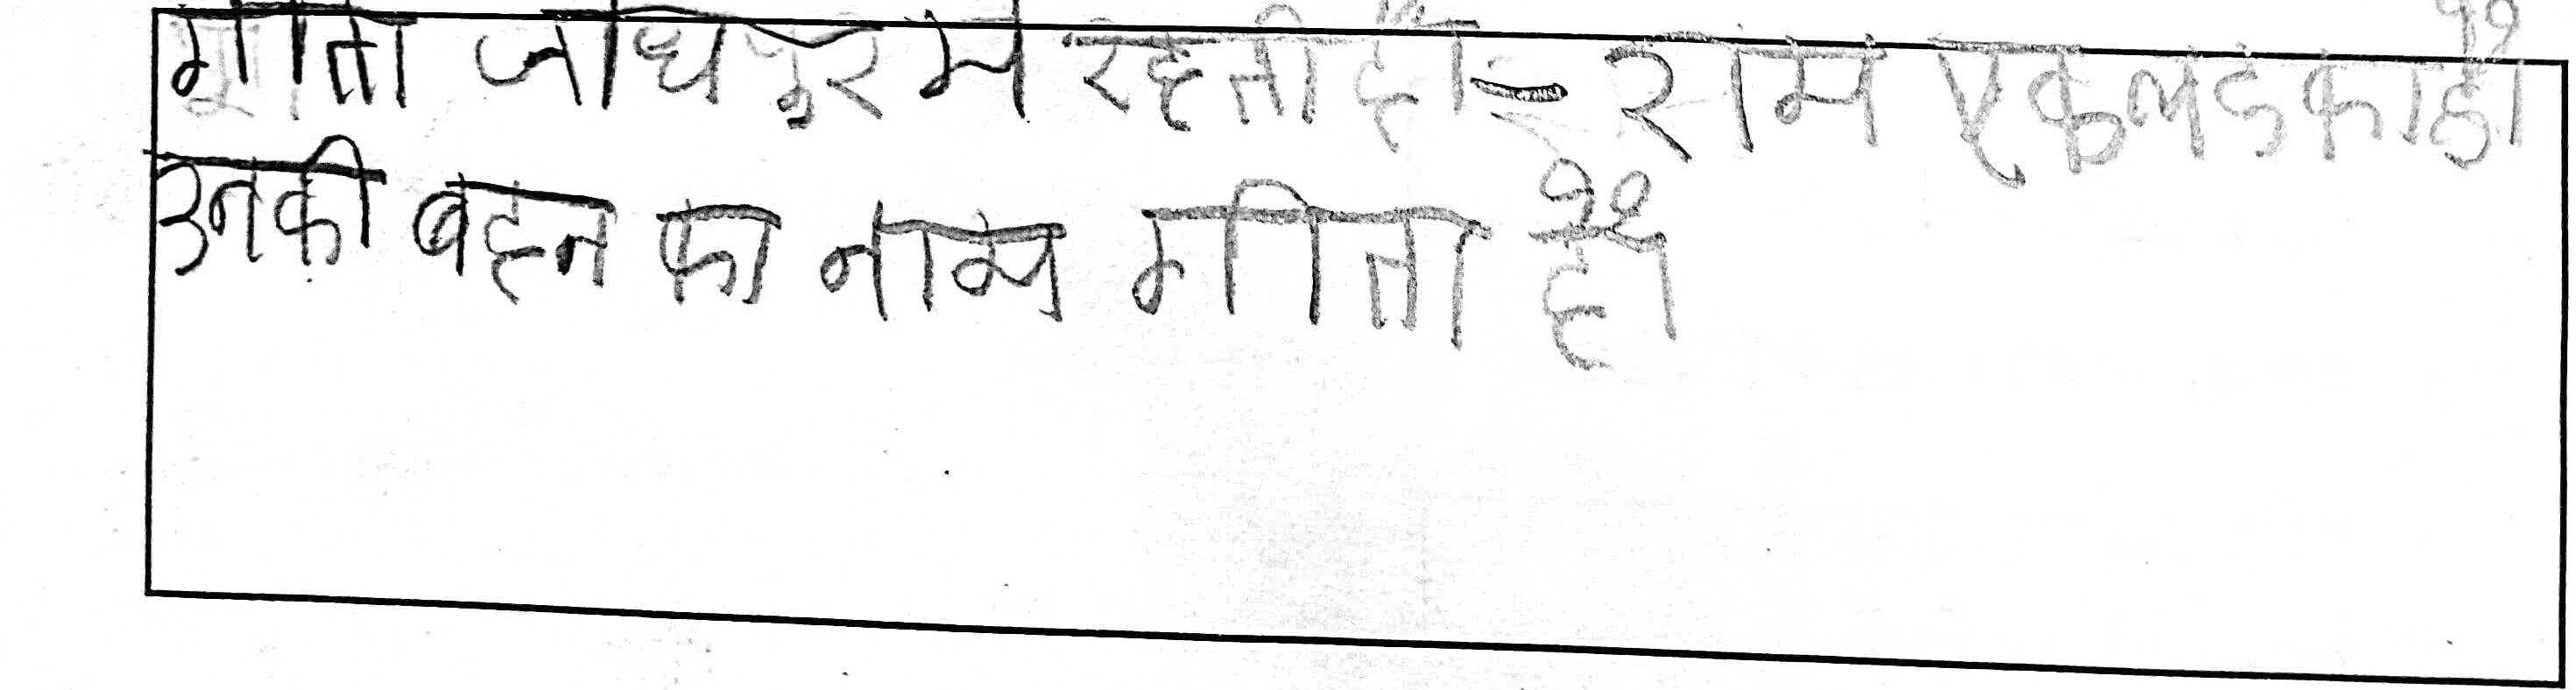 गीता जोधपुर में रहती है। राम एक लडका है।
उनकी बहन का नाम गीता है।